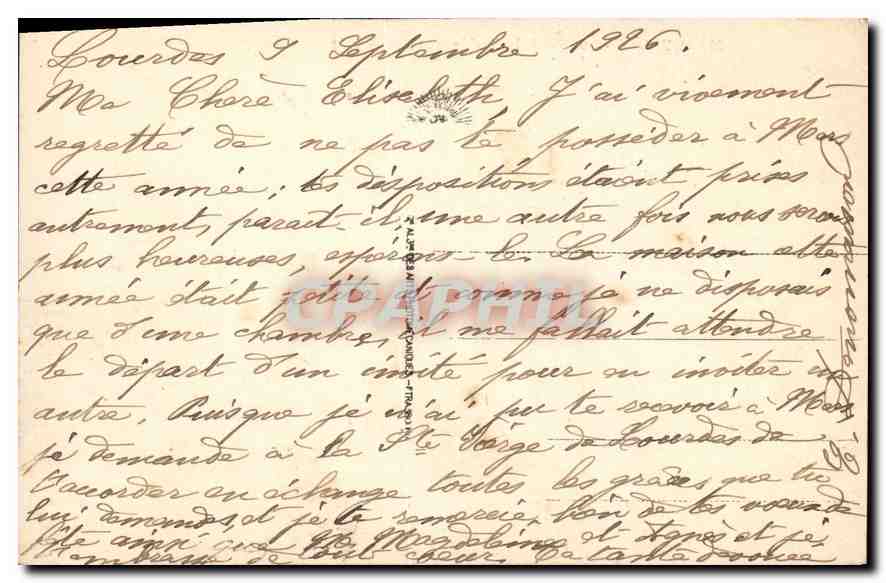 Lourdes 9 Septembre 1926.
Ma Chère Elisabeth, J'ai vivement
regretté de ne pas te posséder à Mers
cette année; les dispositions étaient prises
autrement, parait-il une autre fois nous serons
plus heureuses, espérons-le. La maison cette
année était petite et comme je ne disposais
que d'une chambre, il me fallait attendre
le départ d'un invité pour en inviter un
autre. Puisque je n'ai pu te recevoir à Mers
je demande à la Ste Vierge de Lourdes de
t'accorder en échange toutes les grâces que tu
lui demandes, et je te remercie bien de tes voeux de
fête ainsi que Magdeleine et Agnès et je
de tout coeur. Ta tante dévouée
CPAPHIL